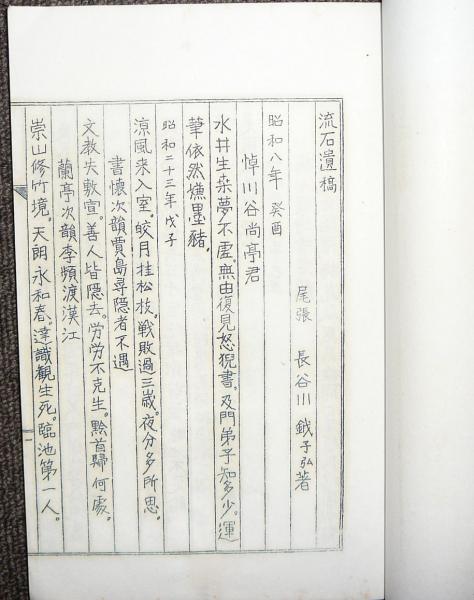 流石遺稿
尾張 長谷川鉞子弘著
昭和八年 癸酉
悼川谷尚亭君
水井生桒夢不虚。無由復見怒猊書。及門弟子知多少。運
筆依然嫌墨豬。
昭和二十三年戊子
涼風来入室。皎月挂松枝。戦敗過三歳。夜分多所思。
書懐次韻賈島尋隠者不遇
文教失敷宣。善人皆隠去。労労不克生。黔首歸何處。
蘭亭次韻李頻渡漢江
崇山修竹境。天朗永和春。達識觀生死。臨池第一人。